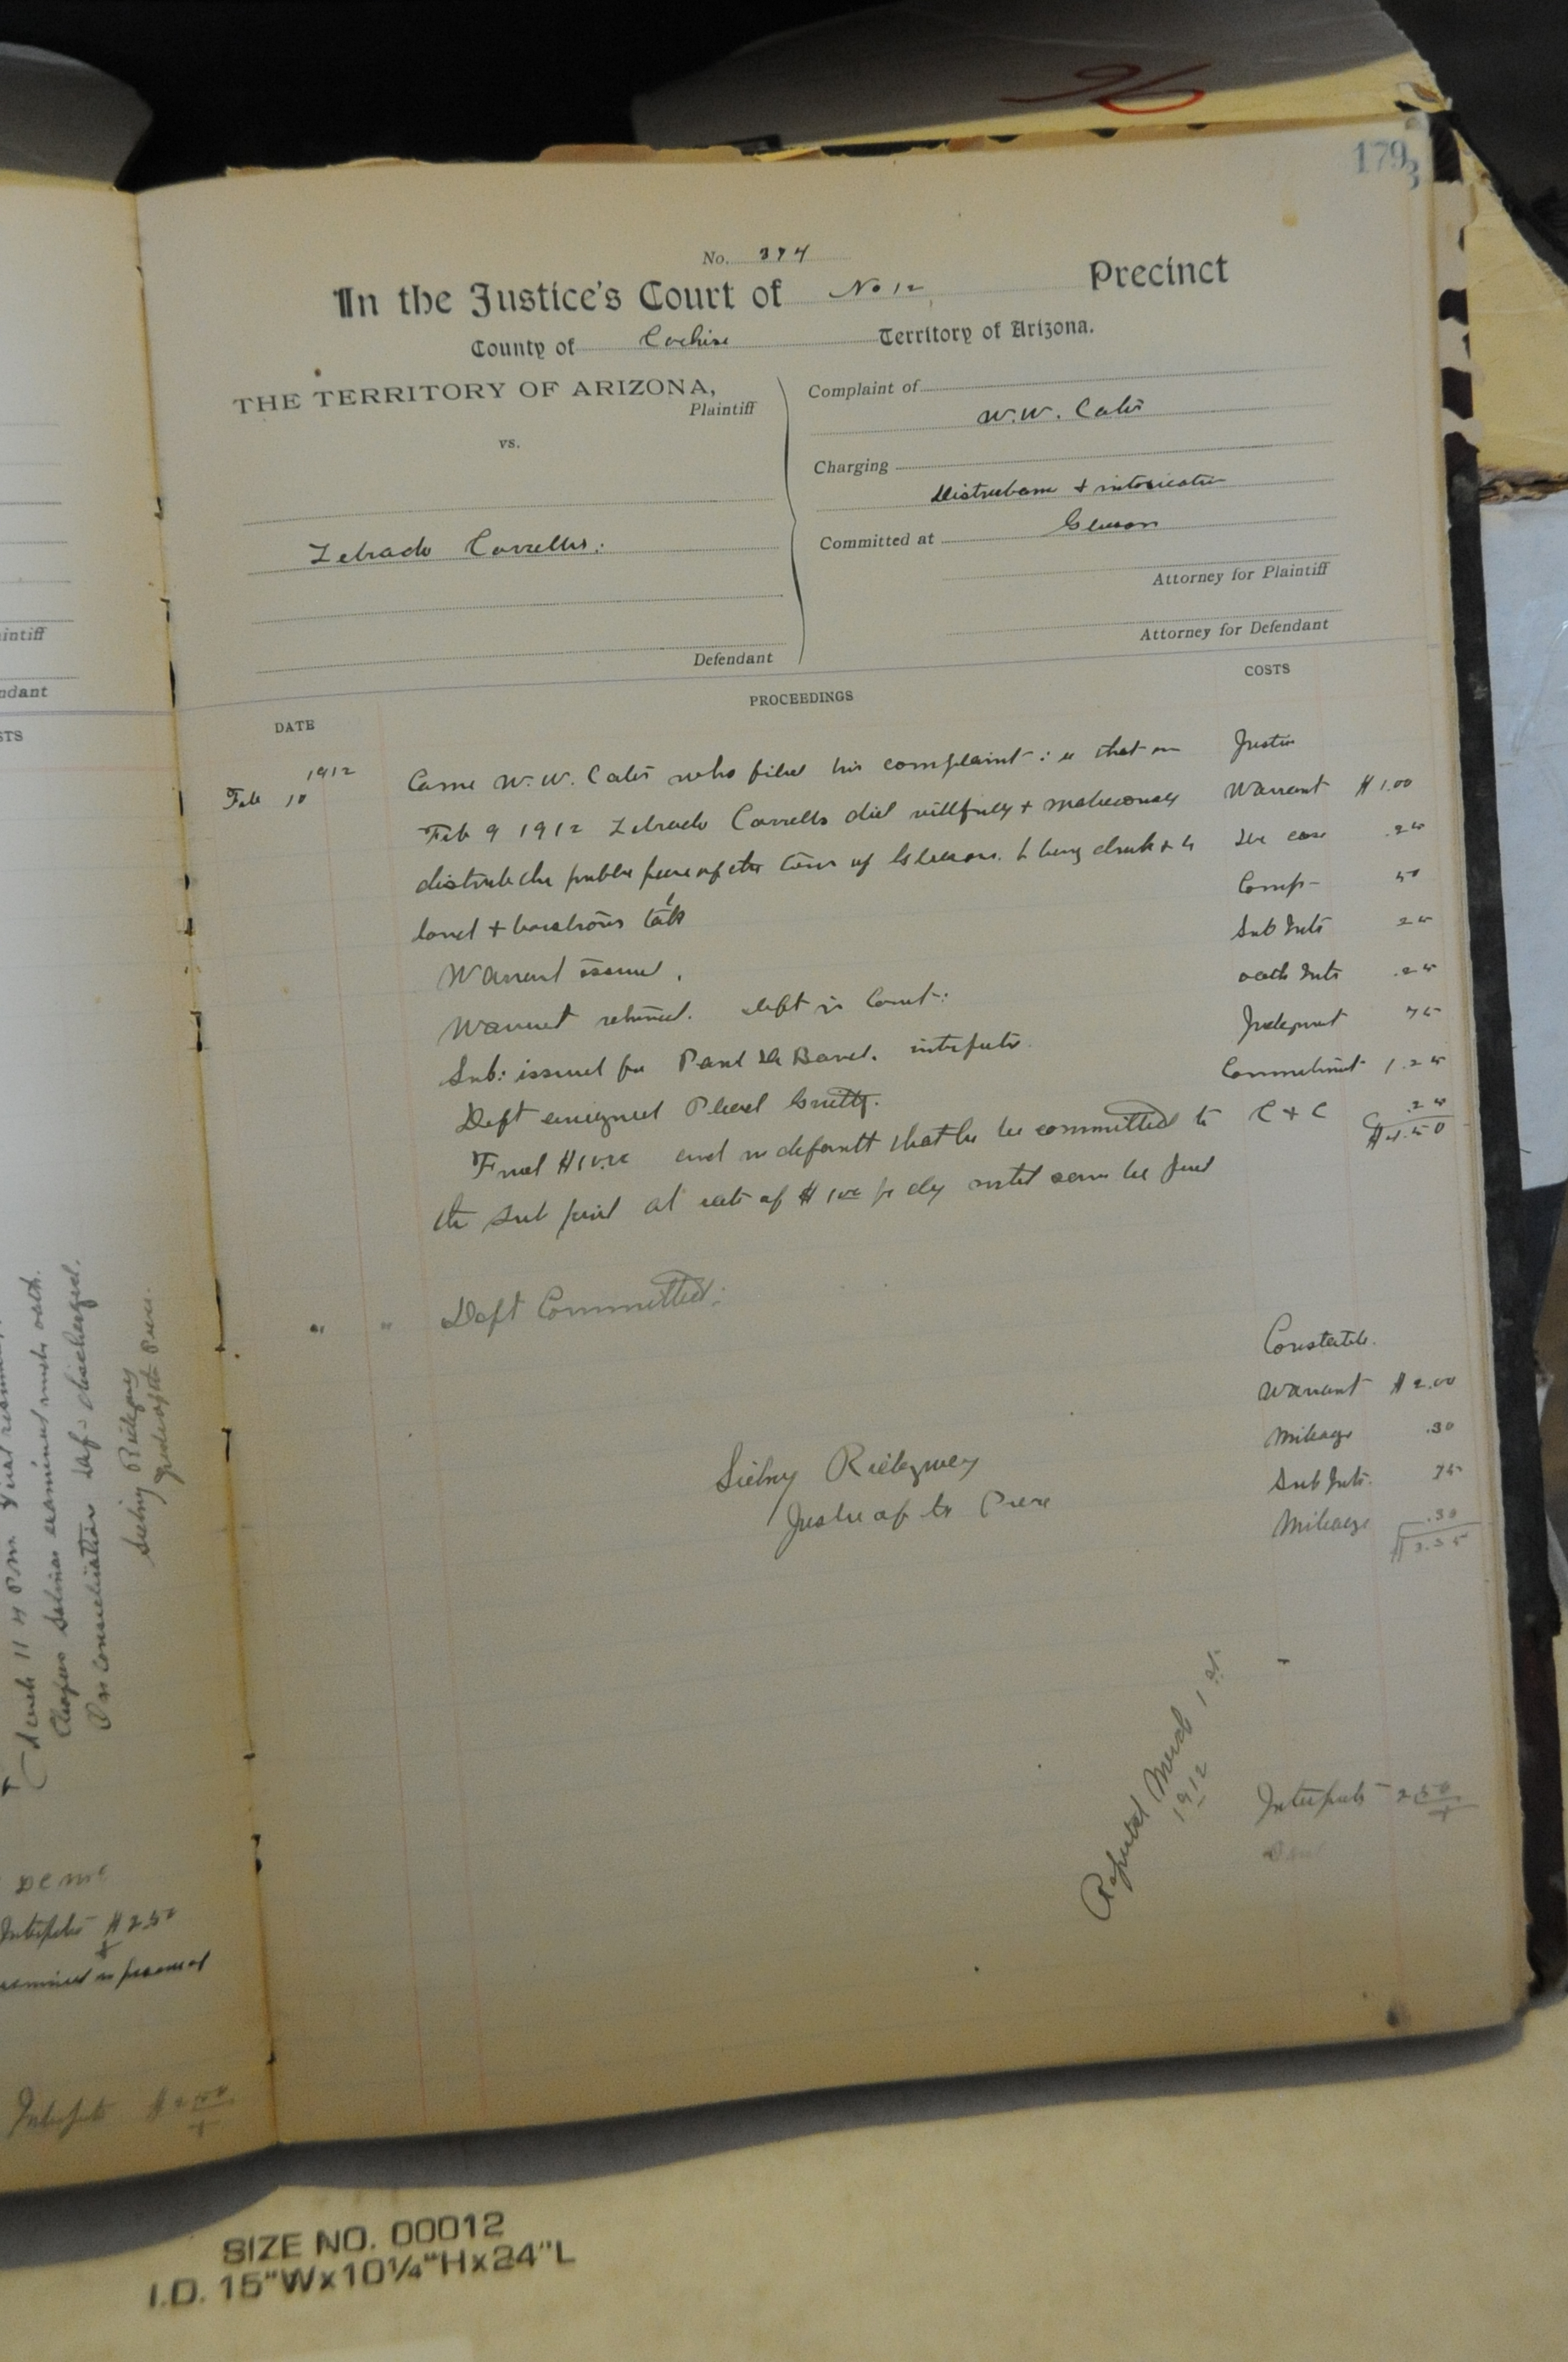 96
179
3
No. 374
In the Justice's Court of No 12 Precinct
County of Cochise Territory of Arizona.
THE TERRITORY OF ARIZONA,
Plaintiff
vs.
Zebrado Corrells.
Defendant
Complaint of
W.W. Cates
Charging
Disturbance & intoxication
Committed at Gleeson
Attorney for Plaintiff
Attorney for Defendant
DATE
PROCEEDINGS
COSTS
1912
Feb 10 Came W.W. Cates who filed his complaint: that on
Feb 9 1912 Zebrado Corrells did willfully & maliciously
disturb the public peace of the town of Gleeson. by being drunk & by
loud & boisterous talk
Warrant issued.
Warrant returned. Deft in Court:
Sub: issued for Interpreter
Deft arraigned Plead Guilty.
Fined and in default that he be committed to
the Sub jail at rate of $1.00 per day until same be paid
" " Deft Committed:
Sidney Ridgway
Justice of the Peace
Justice
Warrant $1.00
.25
Comp 50
Sub Intr 25
oath Intr .25
Judgment 75
Commitment 1.25
C & C .25
$4.50
Constable.
Warrant $2.00
Mileage .30
Sub Intr. 75
Mileage .30
$3.35
Reported March 1st
1912
Interpreter 2.50
intiff
ndant
STS
March 11 4 P.M.
Salinas examined under oath.
On consideration Def- discharged.
Sidney Ridgway
Justice of the Peace.
Interpreter $2.50
Interpreter $2.50
SIZE NO. 00012
I.D. 15"Wx10¼"Hx24"L